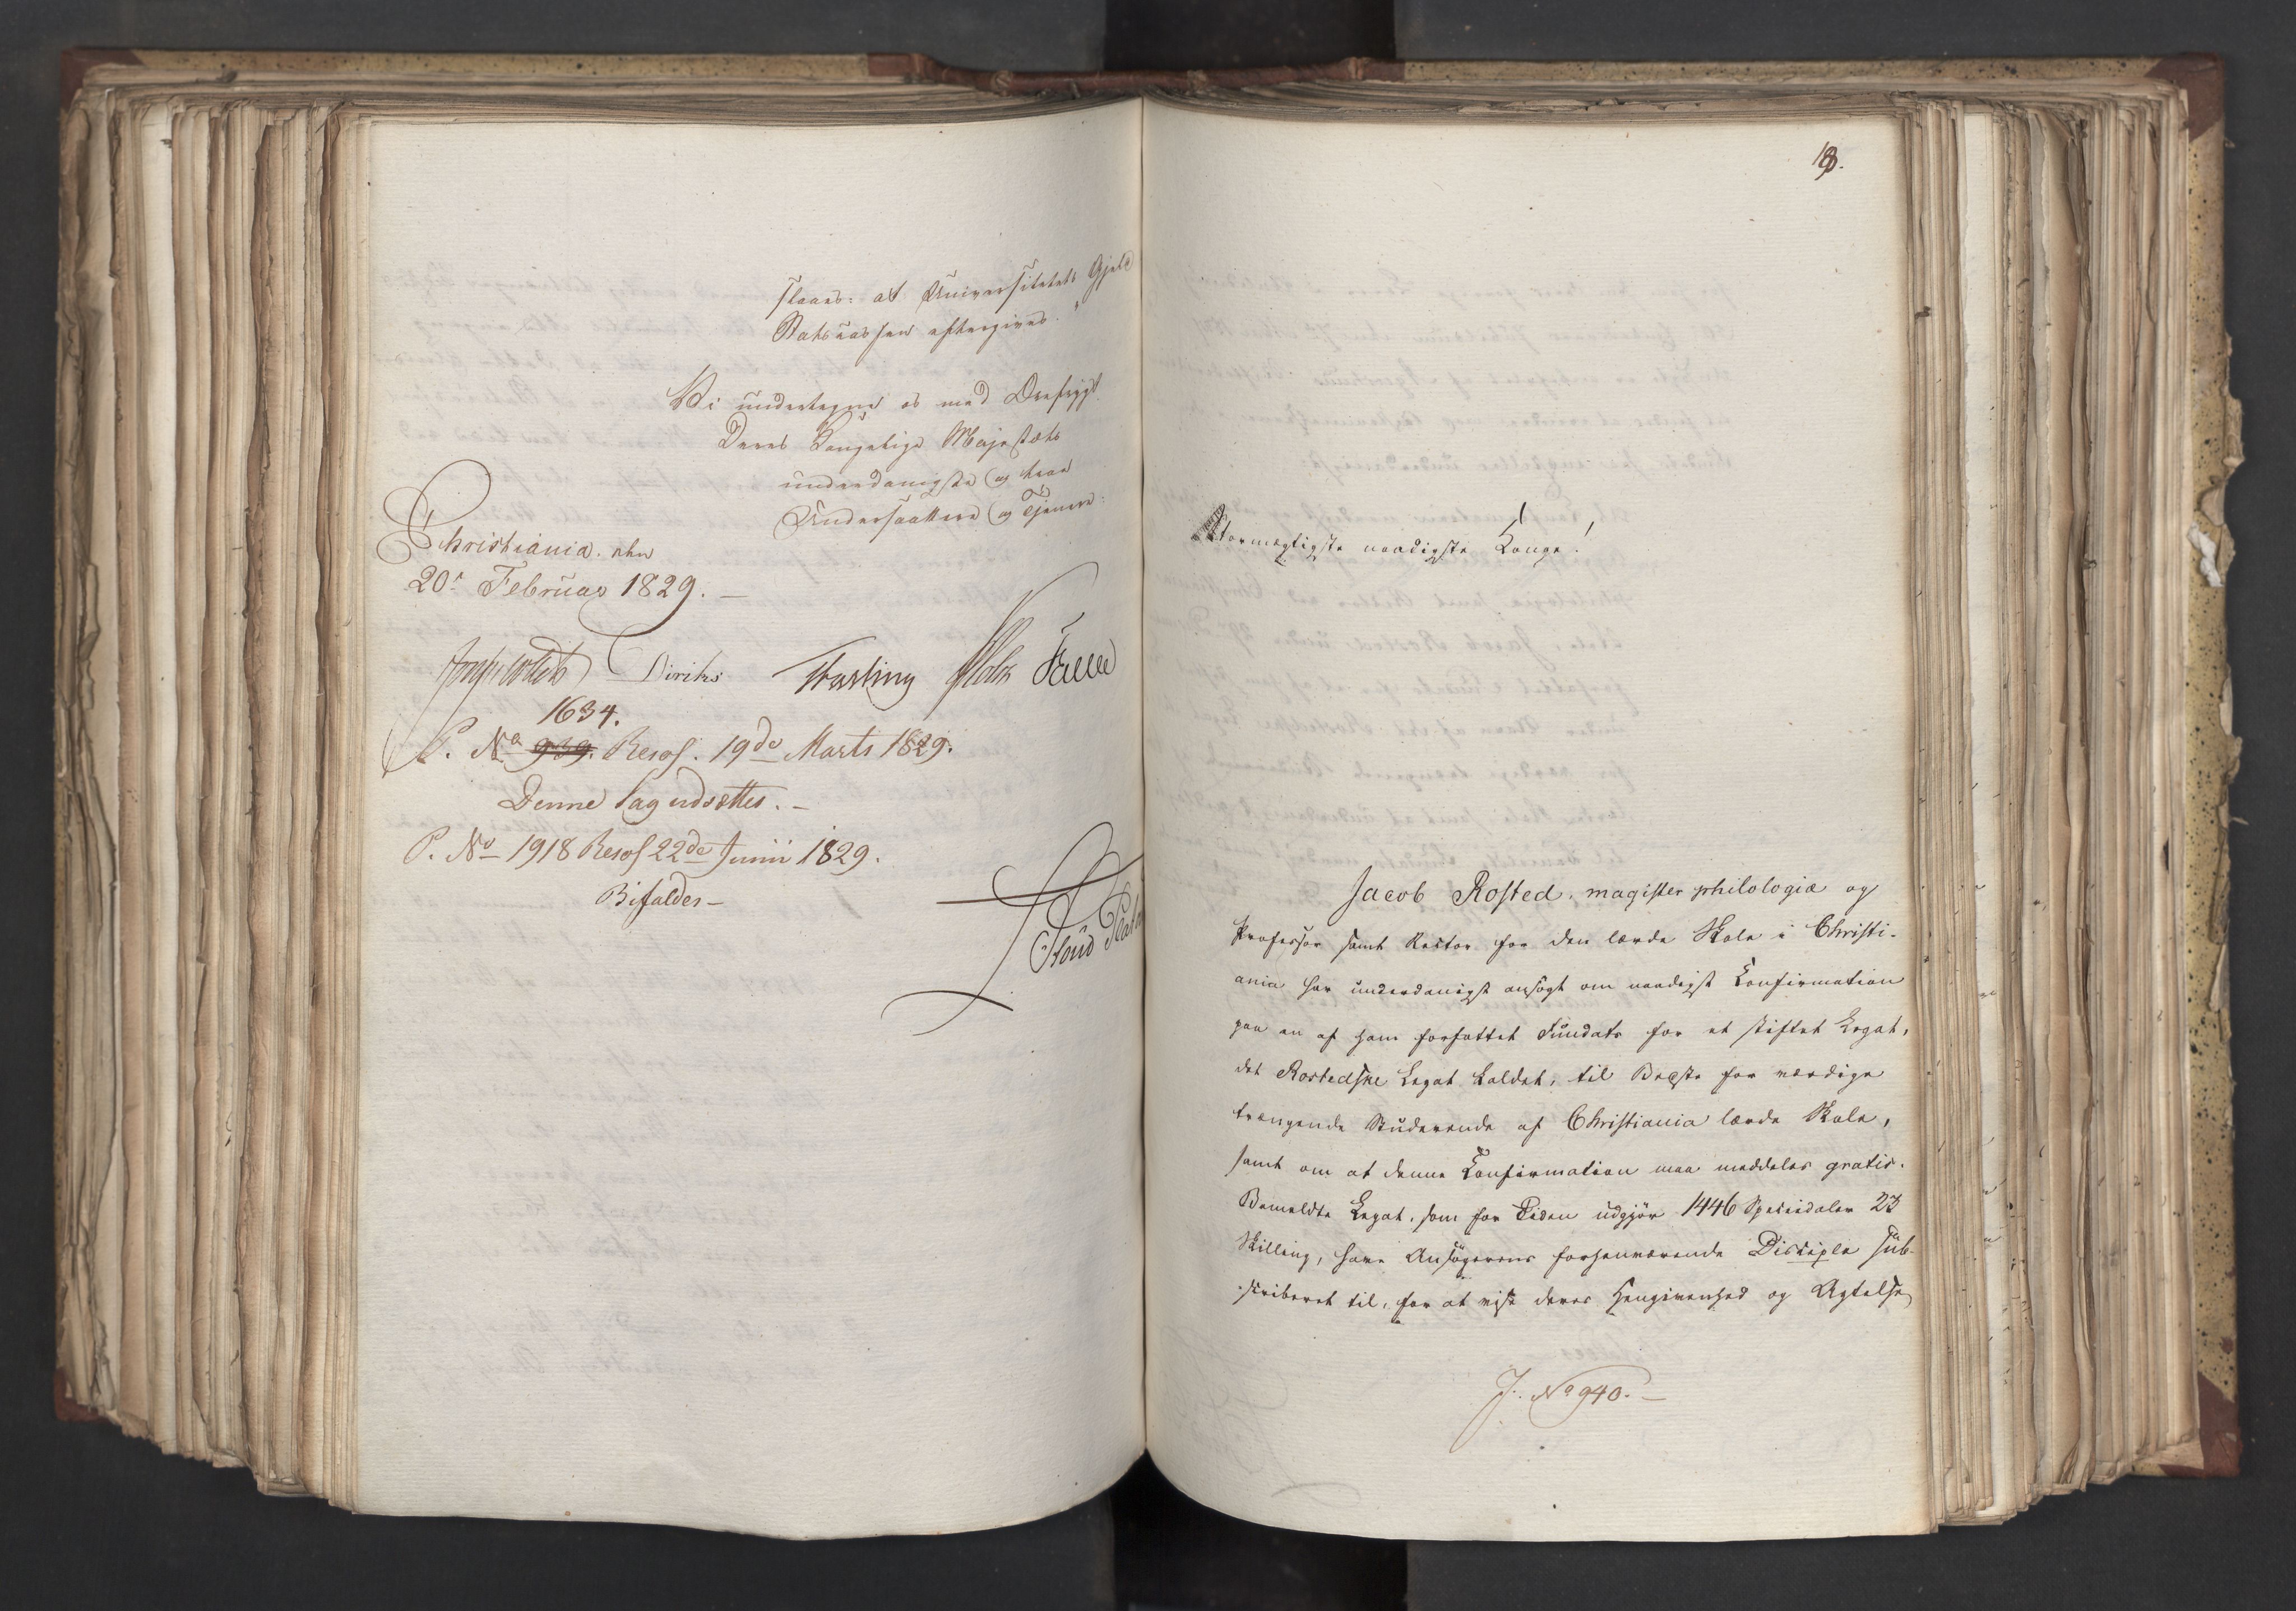 slaaes: at Universitetets Gjeld
Statscassen eftergives."
Vi undertegne os med Ærefrygt
Deres Kongelige Majestæts
underdanigste og troe
Undersaattere og Tjenere.
Christiania den
20de Februar 1829.
Diriks Fasting Holst
1634.
P. No 939. Resol. 19de Marts 1829.
Denne Sag udsættes. –
P. No 1918 Resol 22de Junii 1829.
Bifaldes –
18.
Stormægtigste naadigste Konge!
Jacob Rosted, magister philologiæ og
Professor samt Rector for den lærde Skole i Christi-
ania har underdanigst ansøgt om naadigst Confirmation
paa en af ham forfattet Fundats for et stiftet Legat,
det Rostedske Legat kaldet, til Bedste for værdige
trængende Studerende af Christiania lærde Skole,
samt om at denne Confirmation maa meddeles gratis.
Bemeldte Legat, som for Tiden udgjør 1446 Speciedaler 23
Skilling, have Ansøgerens forhenværende Disciple sub-
scriberet til, for at vise deres Hengivenhed og Agtelse
J. No 940. –